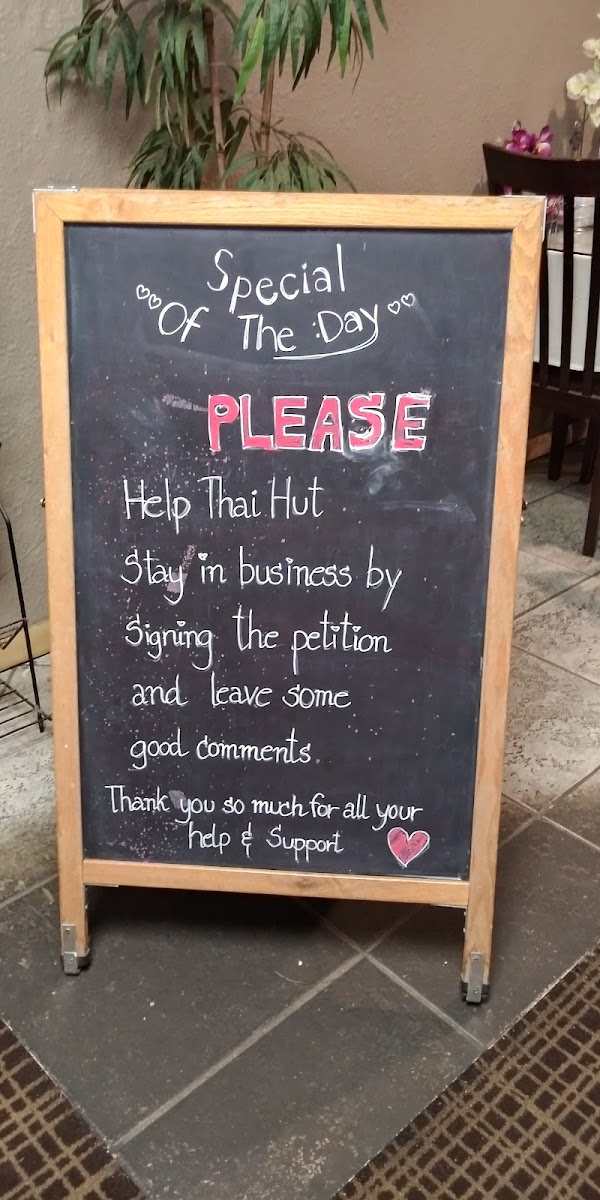 Special
Of The :Day
PLEASE
Help Thai Hut
Stay in business by
Signing the petition
and leave some
good comments.
Thank you so much for all your
help & Support